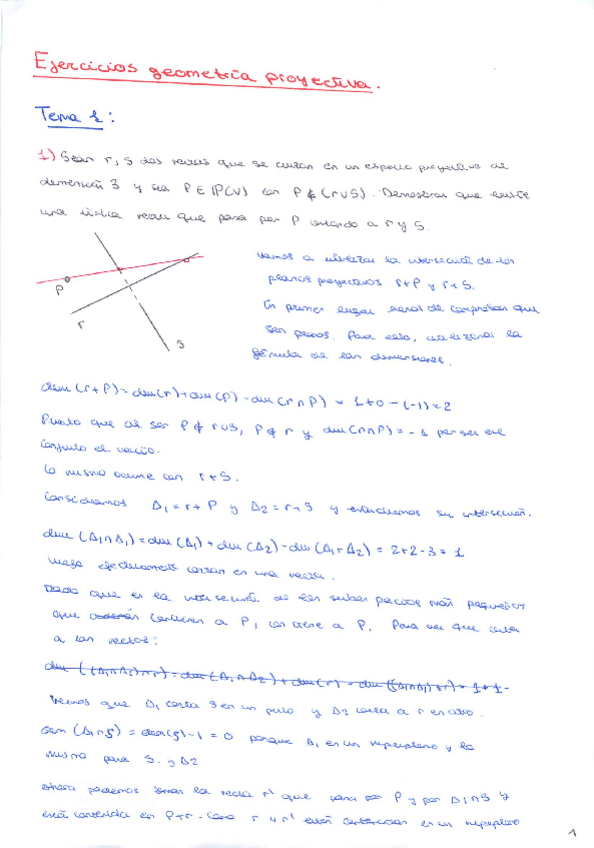 Ejercicios geometría proyectiva.
Tema 1:
1) Sean r, s dos rectas que se cruzan en un espacio proyectivo de
dimensión 3 y sea P ∈ P(V) con P ∉ (r∪s). Demostrar que existe
una única recta que pasa por P cortando a r y s.
P
r
s
Vamos a utilizar la intersección de los
planos proyectivos r+P y r+s.
En primer lugar hemos de comprobar que
son planos. Para ello, utilizamos la
fórmula de las dimensiones.
dim (r+P) = dim(r) + dim (P) - dim (r∩P) = 1+0-(-1) = 2
Puesto que al ser P ∉ r∪s, P ∉ r y dim(r∩P) = -1 por ser ese
conjunto el vacío.
Lo mismo ocurre con r+s.
Consideramos Δ1 = r+P y Δ2 = r+s y estudiamos su intersección.
dim (Δ1∩Δ1) = dim (Δ1) + dim (Δ2) - dim (Δ1+Δ2) = 2+2-3 = 1
luego efectivamente cortan en una recta.
Dado que es la intersección de los subespacios más pequeños
que contienen a P, contiene a P. Para ver que corta
a las rectas:
Vemos que Δ1 corta s en un punto y Δ2 corta a r en otro.
dim (Δ1∩s) = dim(s) - 1 = 0 porque Δ1 es un hiperplano y lo
mismo para s. y Δ2
Ahora podemos tomar la recta r' que pasa por P y por Δ1∩s y
está contenida en P+r. Como r y r' están contenidas en un hiperplano
1